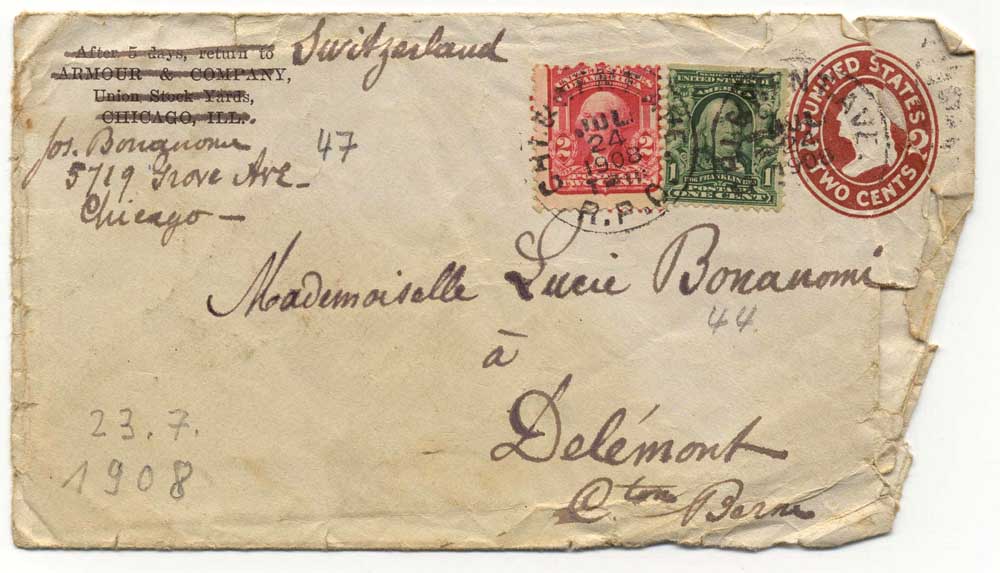 After 5 days, return to
ARMOUR & COMPANY,
Union Stock Yards,
CHICAGO, ILL.
Switzerland
Jos. Bonanomi
5719 Grove Ave
Chicago
47
UNITED STATES
OF AMERICA
2 2
TWO CENTS
UNITED STATES OF
AMERICA
FRANKLIN
1 1
POSTAGE
ONE CENT
JUL
24
1908
R.P.O.
N.
AVE
1908
UNITED STATES
2
TWO CENTS
Mademoiselle Lucie Bonanomi
44
à
Delémont
Cton Berne
23.7.
1908